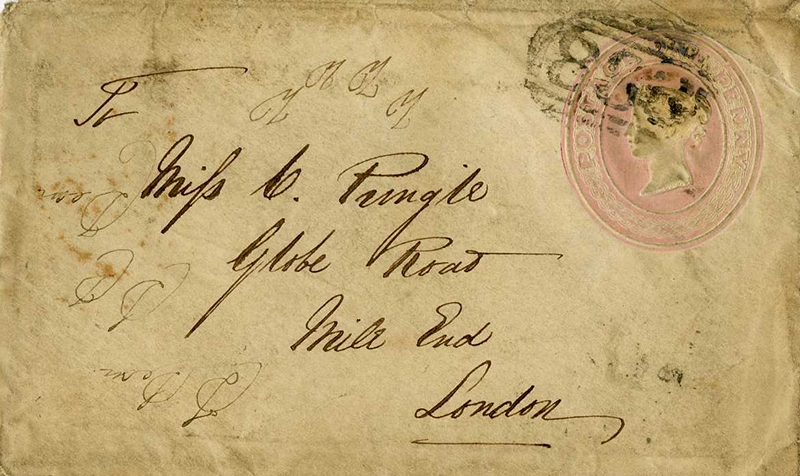 POSTAGE ONE PENNY
To
Miss C. Pringle
Globe Road
Mile End
London